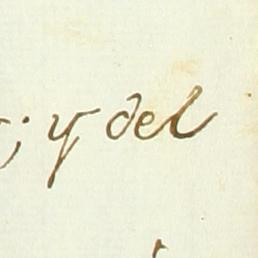 ; y del